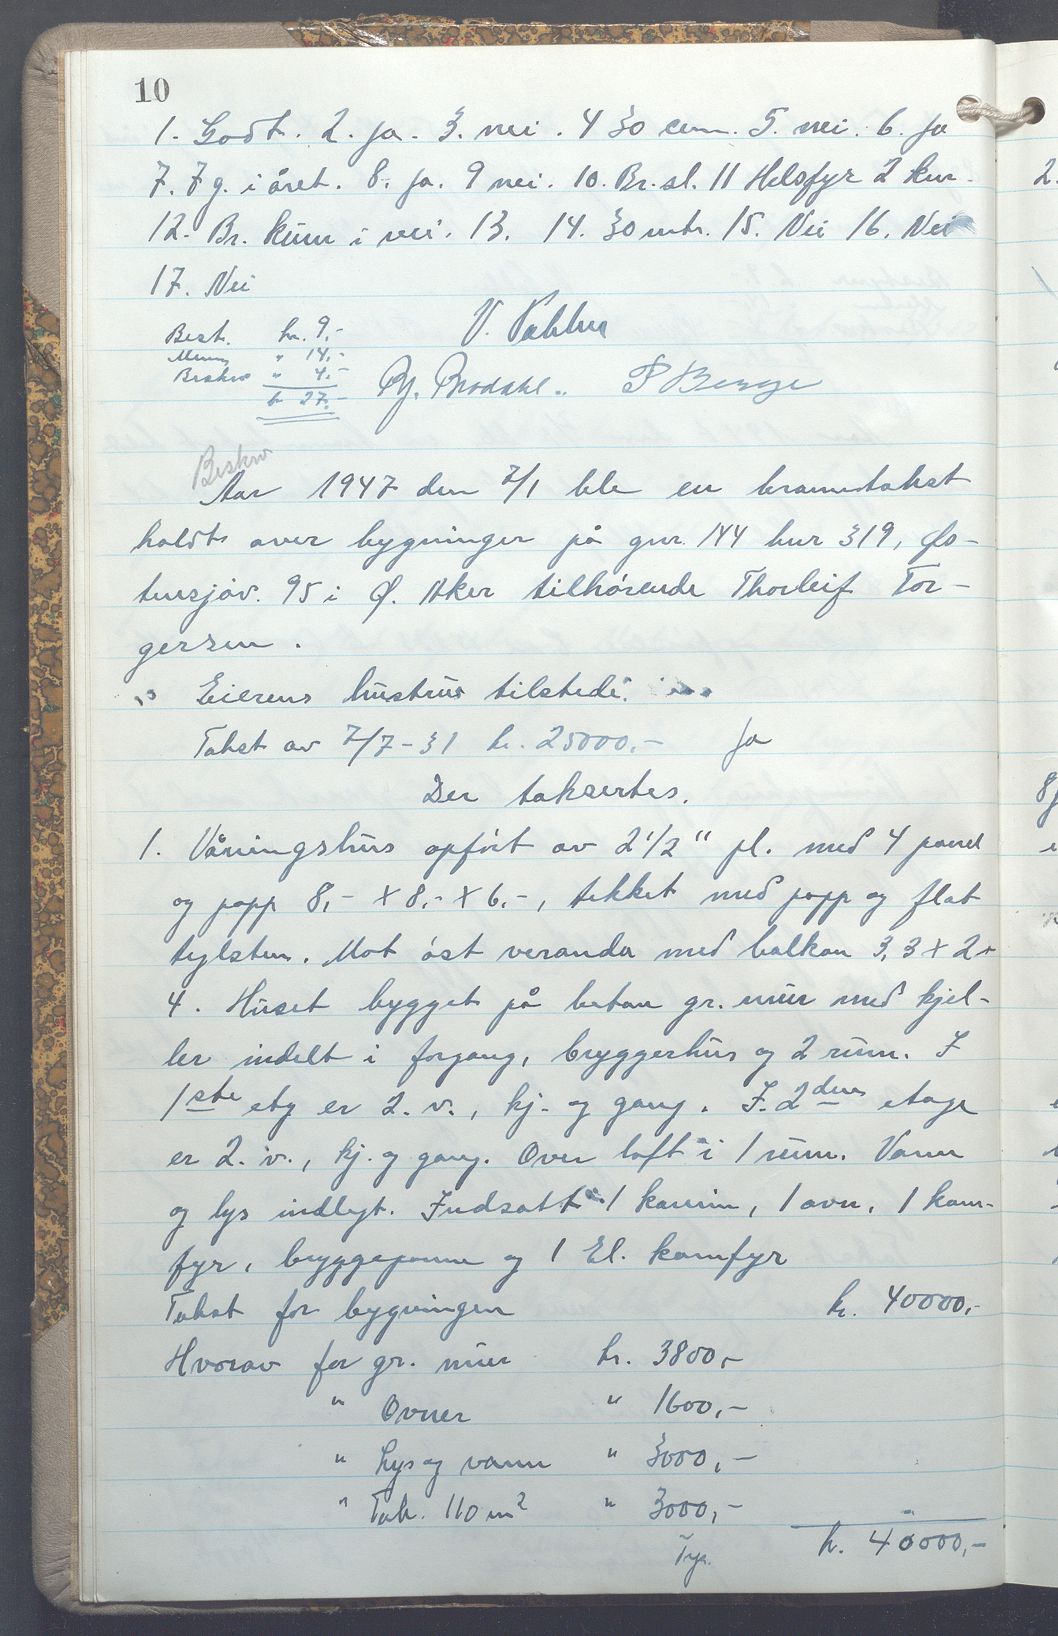 10
1. Godt. 2. ja. 3. nei. 4 30 cm. 5. nei. 6. ja
7. 7 g. i året. 8. ja. 9 nei. 10. Br.sl. 11 Helsfyr 2 km.
12. Br. kum i vei. 13. 14. 30 mtr. 15. Nei 16. Nei
17. Nei
Best. kr. 9,-
" 14,-
Beskrv " 4,-
kr 27,-
V.
P Berge
Beskrv
Aar 1947 den 7/1 ble en branntakst
holdt over bygninger på gnr. 144 bnr 319, Øs-
tensjøv. 95 i Ø. Aker tilhørende Thorleif Tor-
gersen.
Eierens hustrue tilstede.
Takst av 7/7-31 kr. 25000,- Ja
Der taksertes.
1. Våningshus opført av 2 1/2" pl. med 4 panel
og papp 8,- x 8,- x 6,-, tekket med papp og flat
teglsten. Mot øst veranda med balkon 3,3 x 2 x
4. Huset bygget på beton gr. mur med kjel-
ler indelt i forgang, bryggerhus og 2 rum. I
1ste etg er 2. v., kj. og gang. I. 2den etage
er 2. v., kj. og gang. Over loft i 1 rum. Vann
og lys indlagt. Indsatt 1 kamin, 1 ovn, 1 kom-
fyr, bryggepanne og 1 El. komfyr
Takst for bygningen kr. 40000,-
Hvorav for gr. mur kr. 3800,-
" Ovner " 1600,-
" Lys og vann " 3000,-
" Tak. 110 m2 " 3000,-
kr. 40000,-